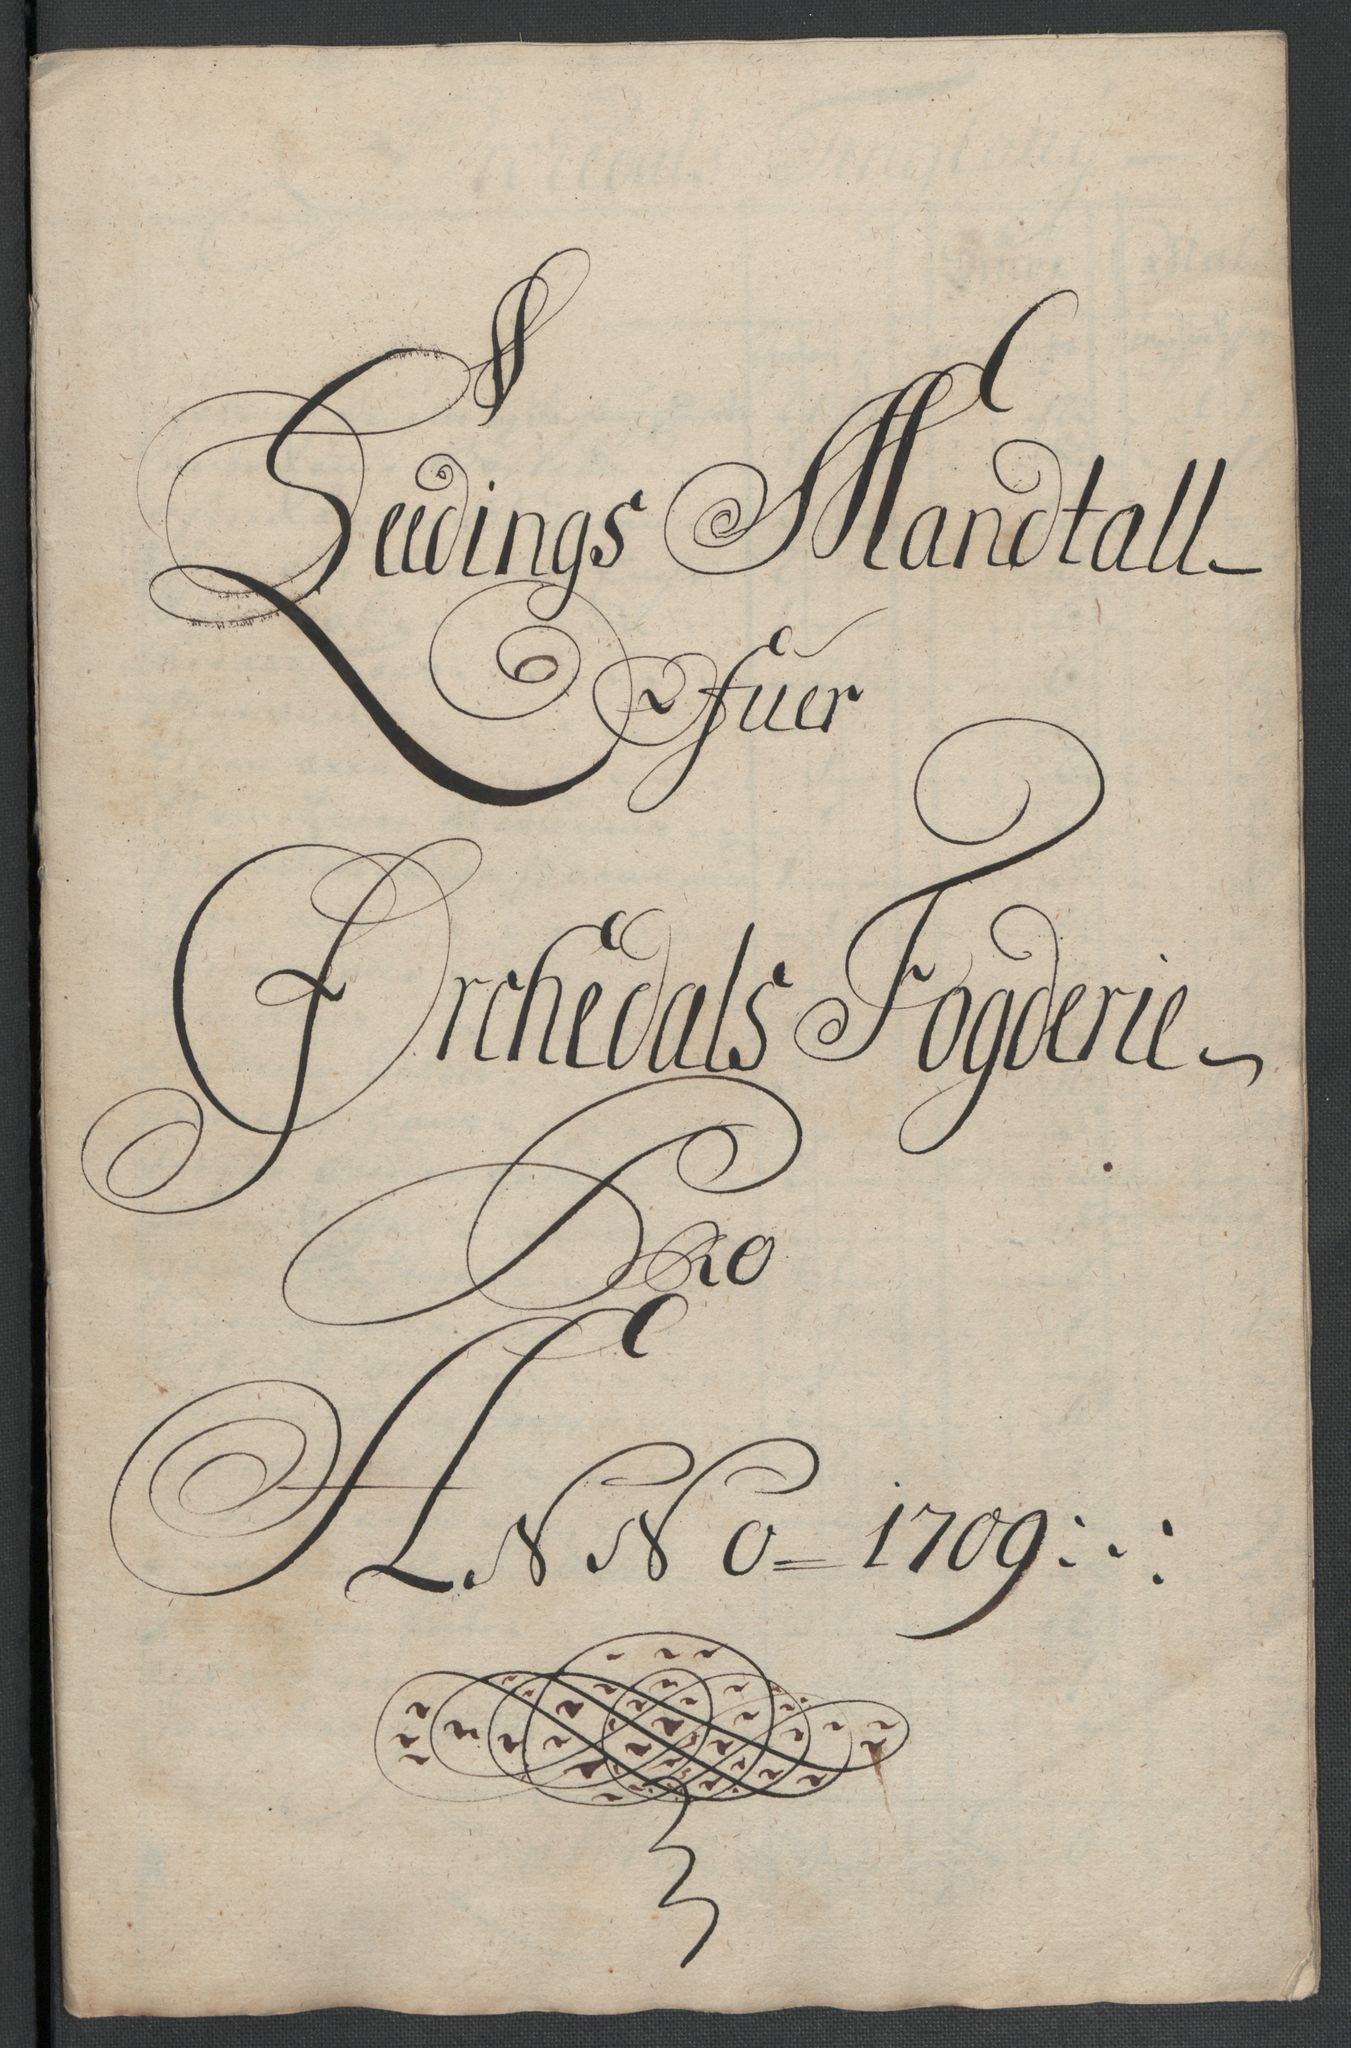 Leedings Mandtall
fuer
Orchedals Fogderie
Pro
ANNO = 1709